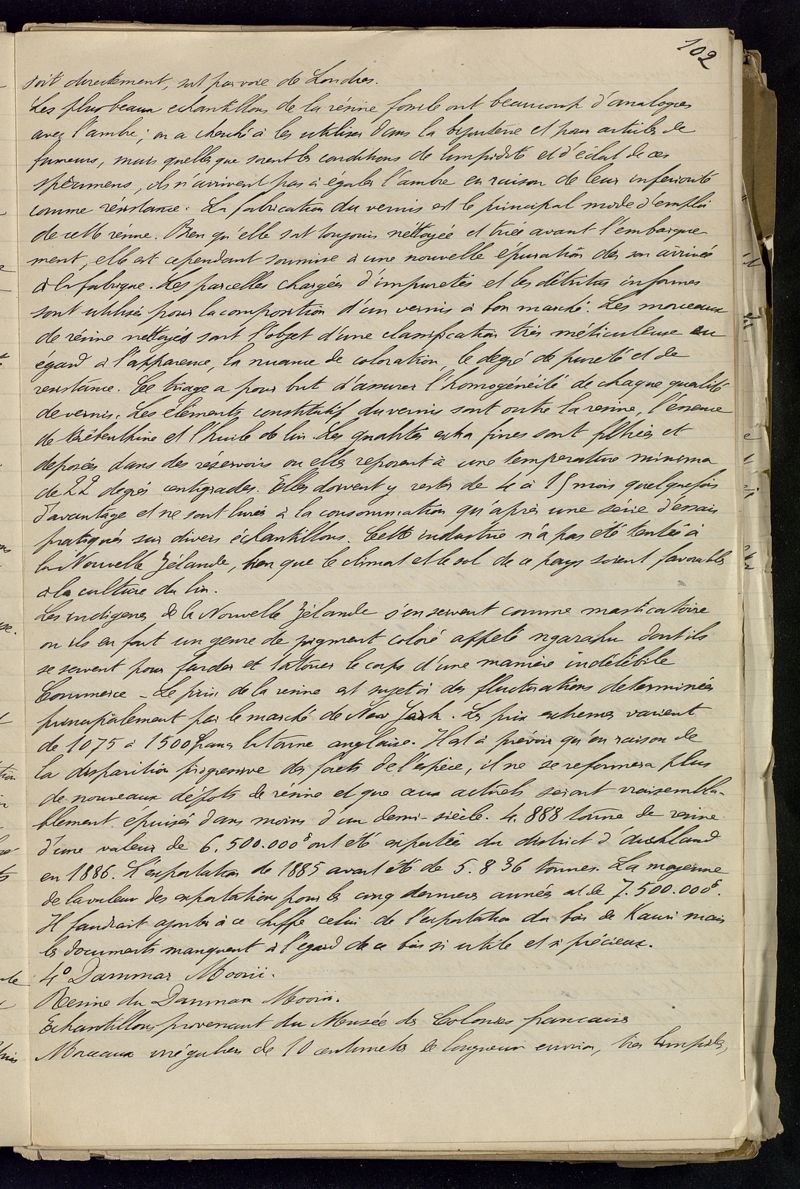 102
soit directement, soit par voie de Londres.
Les plus beaux echantillons de la résine fossile ont beaucoup d'analogies
avec l'ambre; on a cherché à les utiliser dans la bijouterie et pour articles de
fumeurs, mais quelles que soient les conditions de limpidité et d'éclat de ces
spécimens, ils n'arrivent pas à égaler l'ambre en raison de leur inferiorité
comme résistance. La fabrication du vernis est le principal mode d'emploi
de cette résine. Bien qu'elle soit toujours nettoyée et triée avant l'embarque
ment, elle est cependant soumise à une nouvelle épuration dès son arrivée
à la fabrique. Les parcelles chargées d'impuretés et les détritus informes
sont utilisés pour la composition d'un vernis à bon marché. Les morceaux
de résine nettoyés sont l'objet d'une classification très méticuleuse eu
égard à l'apparence, la nuance de coloration, le degré de pureté et de
resistance. Ce triage a pour but d'assurer l'homogénéité de chaque qualité
de vernis. Les éléments constitutifs du vernis sont outre la resine, l'essence
de térébenthine et l'huile de lin. Les qualités extra fines sont filtrées et
deposées dans des réservoirs ou elles reposent à une temperature minima
de 22 degrés centigrades. Elles doivent y rester de 4 à 15 mois quelquefois
d'avantage et ne sont livrés à la consommation qu'après une série d'essais
pratiqués sur divers échantillons. Cette industrie n'a pas été tentée à
la Nouvelle Zélande, bien que le climat et le sol de ce pays soient favorables
à la culture du lin.
Les indigènes de la Nouvelle Zélande s'en servent comme masticatoire
ou ils en font un genre de pigment coloré appelé ngarahu dont ils
se servent pour farder et tatouer le corps d'une manière indélébile
Commerce - Le prix de la resine est sujet à des fluctuations determinées
principalement par le marché de New York. Les prix extremes varient
de 1075 à 1500 francs la tonne anglaise. Il est à prévoir qu'en raison de
la disparition progressive des forets de l'espèce, il ne se reformera plus
de nouveaux dépots de résine et que ceux actuels seront vraisembla-
blement épuisés dans moins d'un demi-siècle. 4.888 tonnes de resine
d'une valeur de 6.500.000 f ont été exportées du district d'Auckland
en 1886. L'exportation de 1885 avait été de 5.836 tonnes. La moyenne
de la valeur des exportations pour les cinq dernieres années est de 7.500.000 f.
Il faudrait ajouter à ce chiffre celui de l'exportation du bois de Kauri mais
les documents manquent à l'égard de ce bois si utile et si précieux.
4° Dammar Moorii.
Resine du Dammara Moorii.
Echantillons provenant du Musée des Colonies francaises
Morceaux irréguliers de 10 centimètres de longueur environ, très limpides,